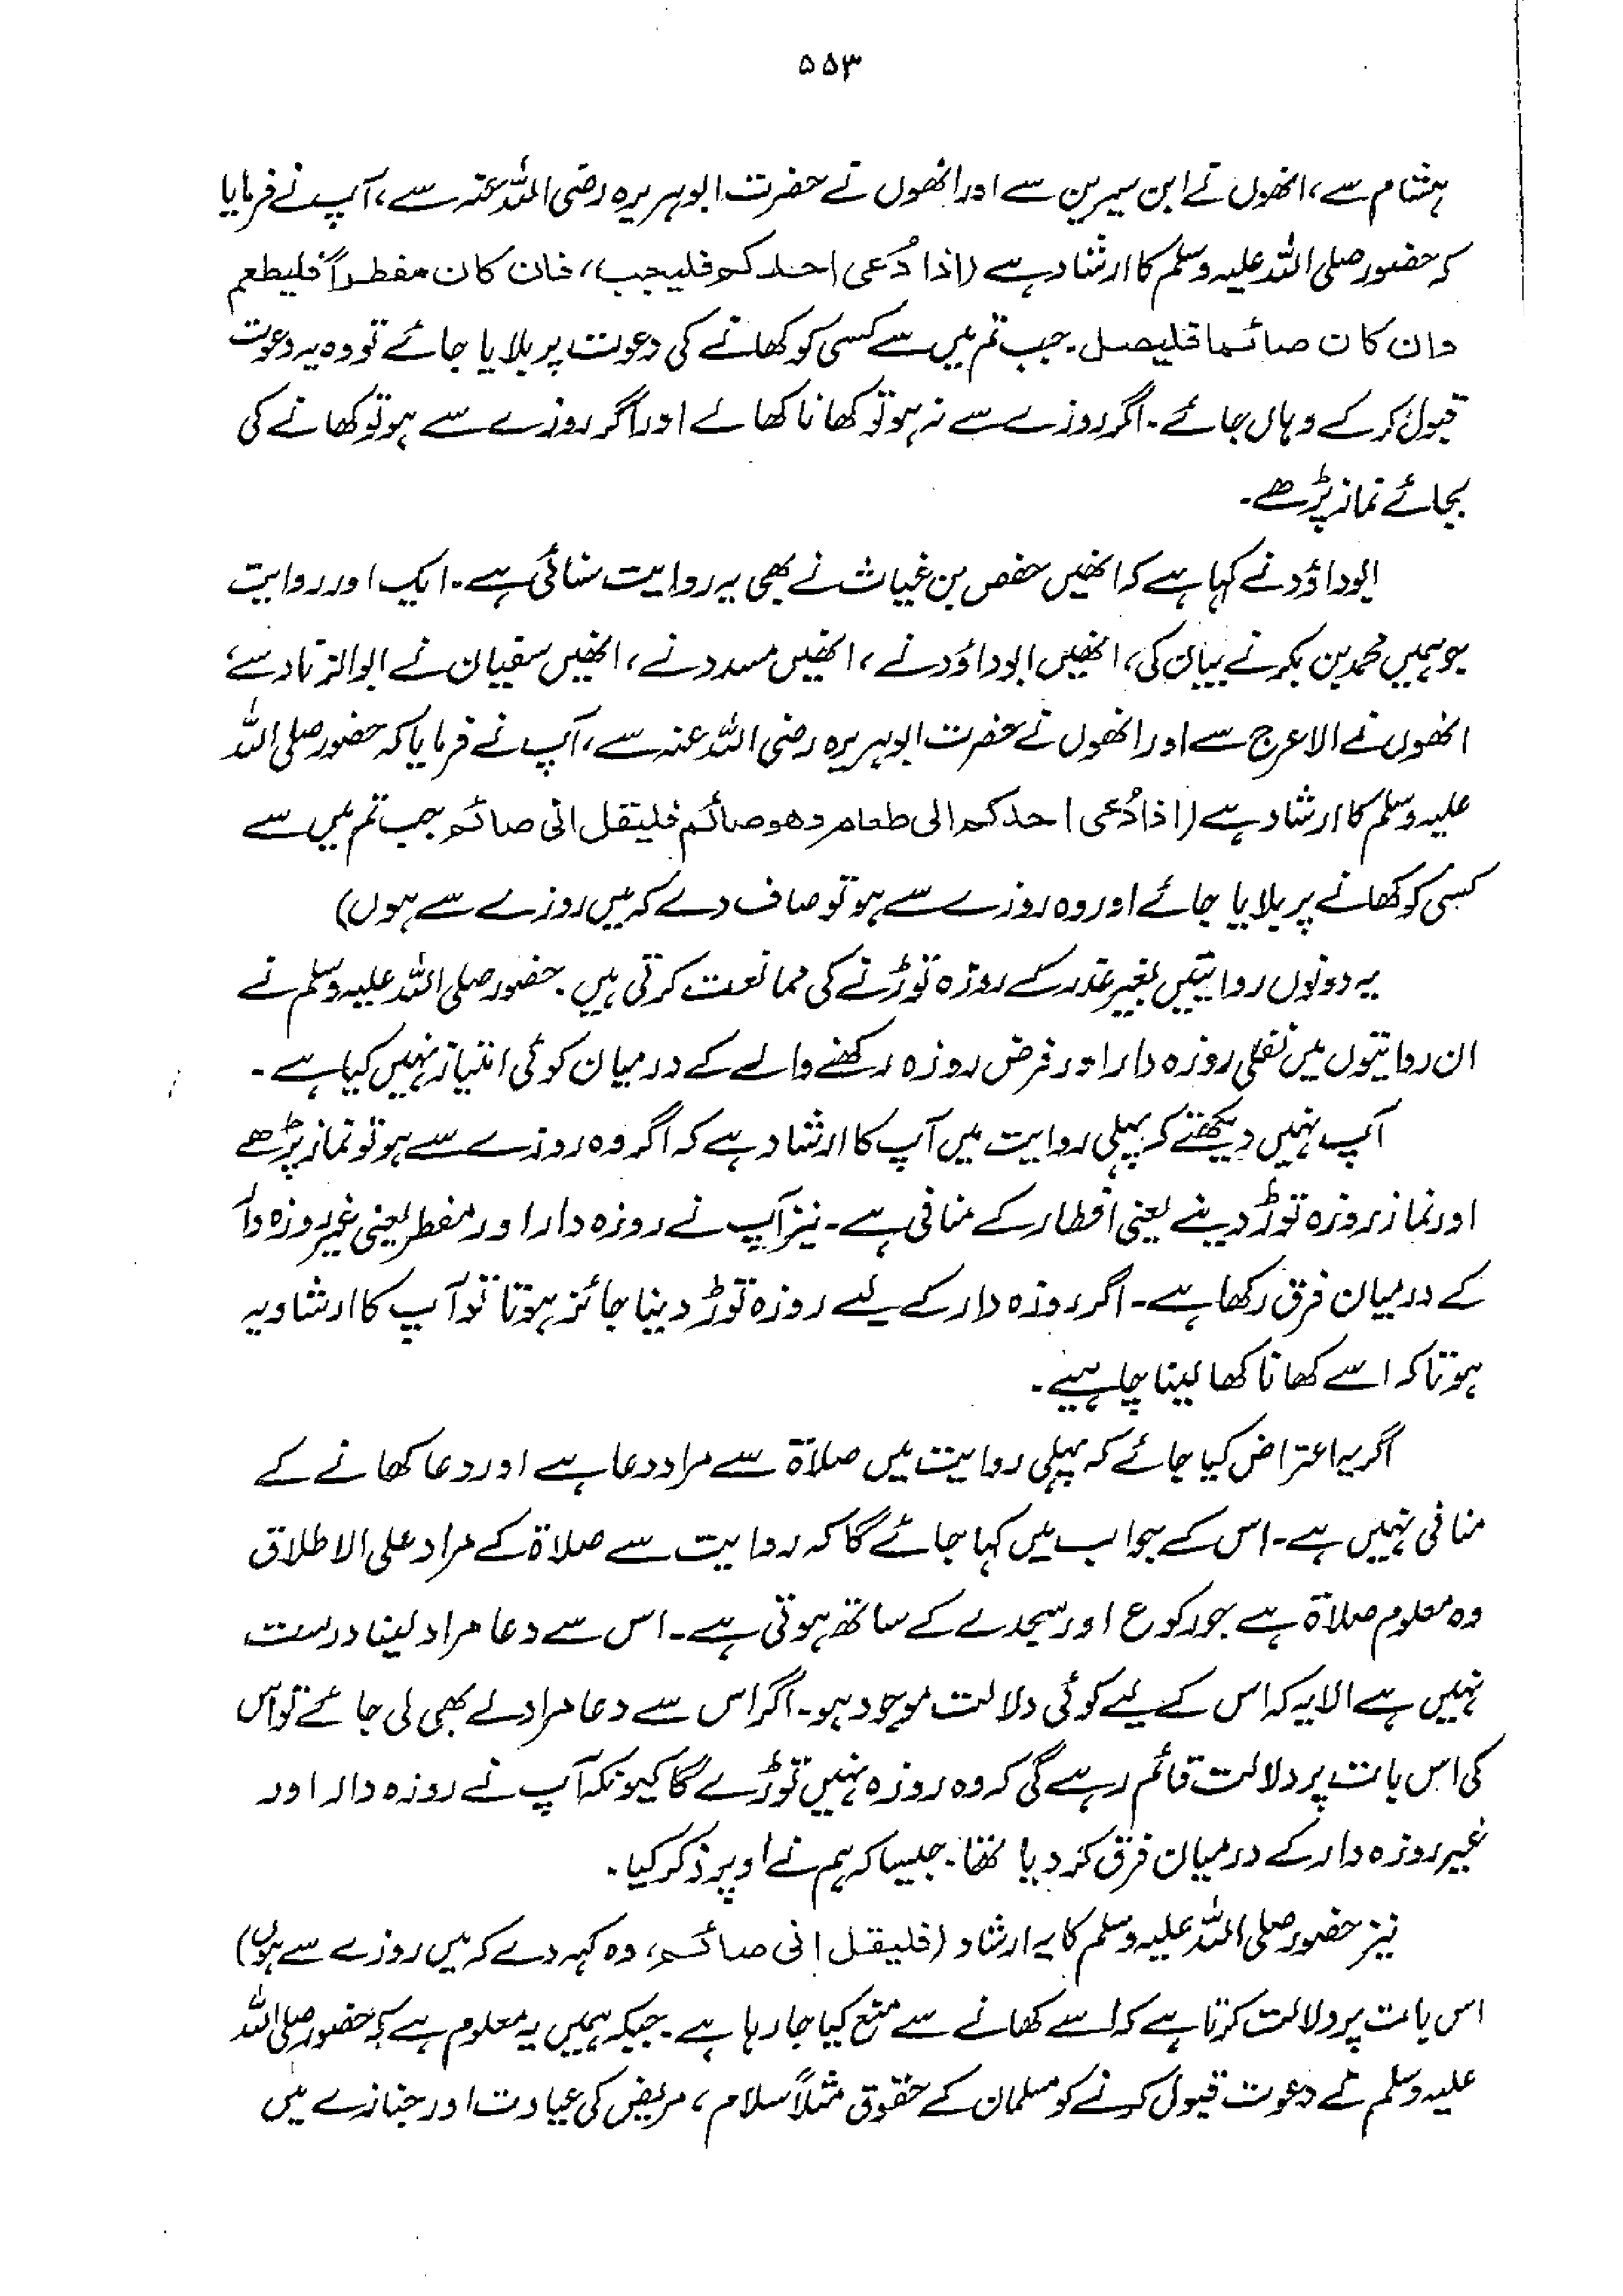 ۵۵۳
ہشام سے، انھوں نے ابن سیرین سے اور انھوں نے حضرت ابوہریرہ رضی اللہ عنہ سے، آپ نے فرمایا
کہ حضور صلی اللہ علیہ وسلم کا ارشاد ہے (اذا دُعی احدکم فلیجب، فان کان مفطراً فلیطعم
وان کان صائما فلیصل۔ جب تم میں سے کسی کو کھانے کی دعوت پر بلایا جائے تو وہ یہ دعوت
قبول کر کے وہاں جائے۔ اگر روزے سے نہ ہو تو کھانا کھا لے اور اگر روزے سے ہو تو کھانے کی
بجائے نماز پڑھے۔
ابوداؤد نے کہا ہے کہ انھیں حفص بن غیاث نے بھی یہ روایت سنائی ہے۔ ایک اور روایت
جو ہمیں محمد بن بکر نے بیان کی، انھیں ابوداؤد نے، انھیں مسدد نے، انھیں سفیان نے ابوالزناد سے،
انھوں نے الاعرج سے اور انھوں نے حضرت ابوہریرہ رضی اللہ عنہ سے، آپ نے فرمایا کہ حضور صلی اللہ
علیہ وسلم کا ارشاد ہے (اذا دُعی احدکم الی طعام وھو صائم فلیقل انی صائم جب تم میں سے
کسی کو کھانے پر بلایا جائے اور وہ روزے سے ہو تو صاف دے کہ میں روزے سے ہوں)
یہ دونوں روایتیں بغیر عذر کے روزہ توڑنے کی ممانعت کرتی ہیں۔ حضور صلی اللہ علیہ وسلم نے
ان روایتوں میں نفلی روزہ دار اور فرض روزہ رکھنے والے کے درمیان کوئی امتیاز نہیں کیا ہے۔
آپ نہیں دیکھتے کہ پہلی روایت میں آپ کا ارشاد ہے کہ اگر وہ روزے سے ہو تو نماز پڑھے
اور نماز روزہ توڑ دینے یعنی افطار کے منافی ہے۔ نیز آپ نے روزہ دار اور مفطر یعنی غیر روزہ دار
کے درمیان فرق رکھا ہے۔ اگر روزہ دار کے لیے روزہ توڑ دینا جائز ہوتا تو آپ کا ارشاد یہ
ہوتا کہ اسے کھانا کھا لینا چاہیے۔
اگر یہ اعتراض کیا جائے کہ پہلی روایت میں صلاۃ سے مراد دعا ہے اور دعا کھانے کے
منافی نہیں ہے۔ اس کے جواب میں کہا جائے گا کہ روایت سے صلاۃ کے مراد علی الاطلاق
وہ معلوم صلاۃ ہے جو رکوع اور سجدے کے ساتھ ہوتی ہے۔ اس سے دعا مراد لینا درست
نہیں ہے الا یہ کہ اس کے لیے کوئی دلالت موجود ہو۔ اگر اس سے دعا مراد لے بھی لی جائے تو اس
کی اس بات پر دلالت قائم رہے گی کہ وہ روزہ نہیں توڑے گا کیونکہ آپ نے روزہ دار اور
غیر روزہ دار کے درمیان فرق کر دیا تھا۔ جیسا کہ ہم نے اوپر ذکر کیا۔
نیز حضور صلی اللہ علیہ وسلم کا یہ ارشاد (فلیقل انی صائم، وہ کہہ دے کہ میں روزے سے ہوں)
اس بات پر دلالت کرتا ہے کہ اسے کھانے سے منع کیا جا رہا ہے۔ جبکہ ہمیں یہ معلوم ہے کہ حضور صلی اللہ
علیہ وسلم نے دعوت قبول کرنے کو مسلمان کے حقوق مثلاً سلام، مریض کی عیادت اور جنازے میں